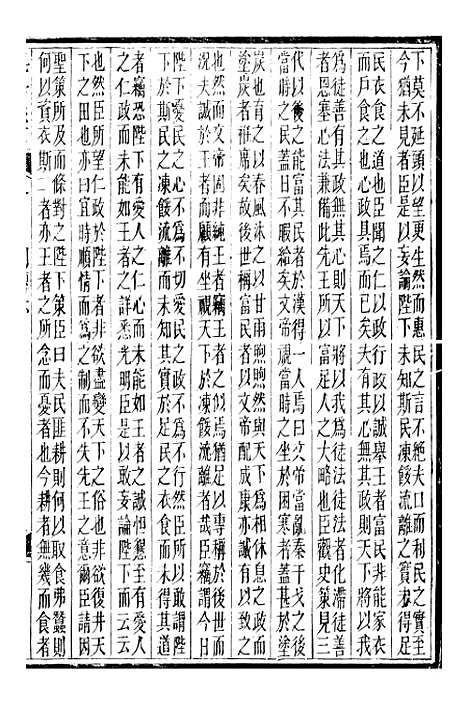 下莫不延頸以望更生然而惠民之言不絕夫口而利民之實至
今猶未見者臣是以妄論陛下未知斯民凍餒流離之實未得足
民衣食之道也臣聞之仁政以誠舉王者富民非能家衣
而戶食之也心政具焉而已矣夫有其心無其政則天下將以我
爲徒善有其政無其心則天下將以我爲徒法徒法者化滯徒善
者恩塞心法兼備此先王所以富足人之大略也臣觀史策見三
代以後能富其民者於漢得一人焉曰文帝當亂秦干戈之後
當時之民葢日不暇給矣文帝視當時之坐於困寒者葢甚於塗
炭也育之以春風沐之以甘雨煦煦然與天下爲相休息之政而
塗炭者衽席矣故後世稱富民者以文帝配成康亦誠有以致之
也然而文帝固非純王者竊王者之似焉猶足以專稱於後世而
況夫誠於王者而顧有坐視天下於凍餒流離者哉臣竊謂今日
陛下愛民之心不爲不切愛民之政不爲不行然臣所以敢謂陛
下未知斯民之凍餒流離而未實於足民之衣食而未得其道
者竊恐陛下有愛人之仁心而未能如王者之誠怛懇至有愛人
之仁政而未能如王者之詳悉光明臣是以敢妄論陛下而云云
也然臣所望仁政於陛下者非欲盡變天下之俗也非欲復井天
下之田也亦曰宜時順情而爲之制而不失先王之意爾臣請因
聖策所及而條對之陛下策臣曰夫民匪耕則何以取食弗蠶則
何以資衣斯二者亦王者所念而憂者也今耕者無幾而食者